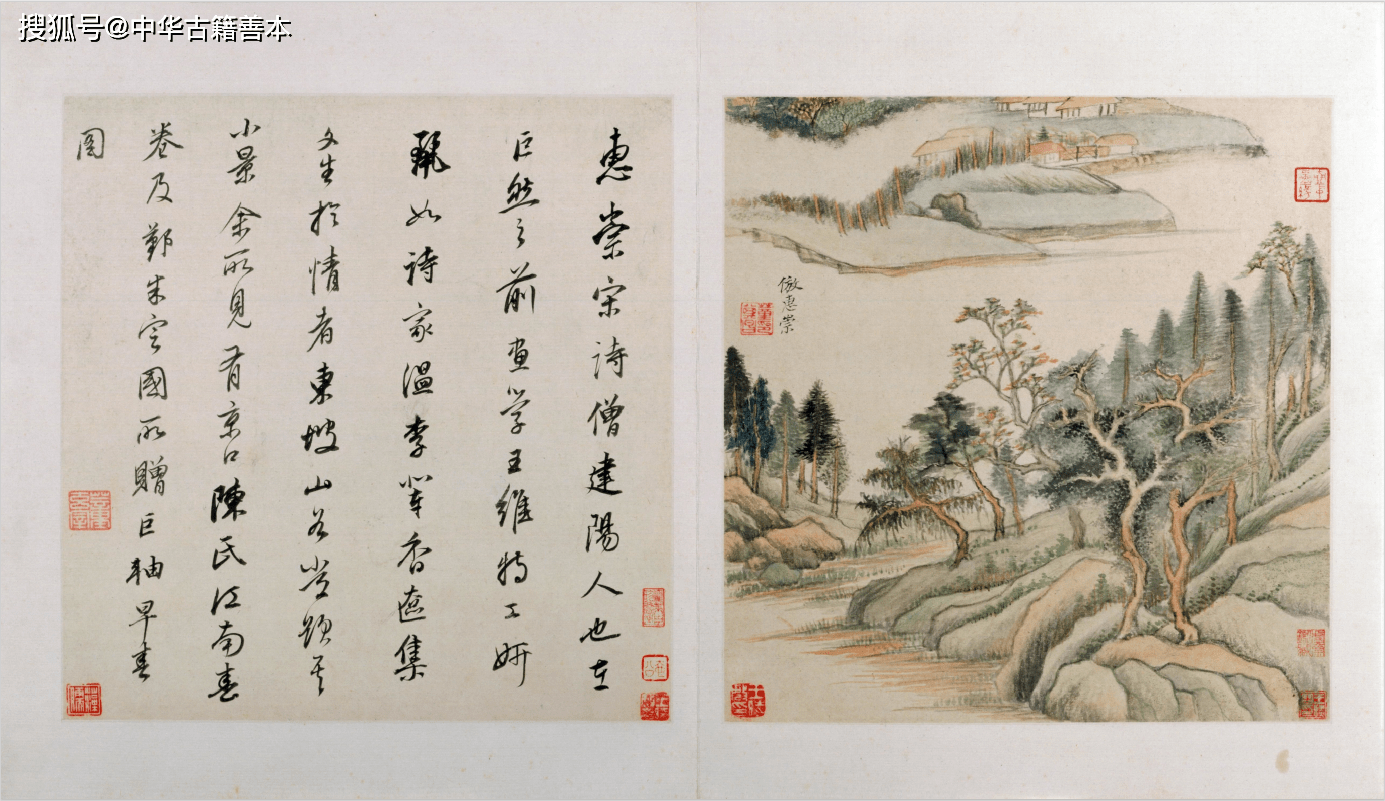 搜狐号@中华古籍善本
倣惠崇
惠崇宋詩僧建陽人也在
巨然之前畫學王維特工妍
麗如詩家溫李輩香奩集
文生於情者東坡山谷嘗題其
小景余所見有京口陳氏江南春
卷及朱定國所贈巨軸早春
圖